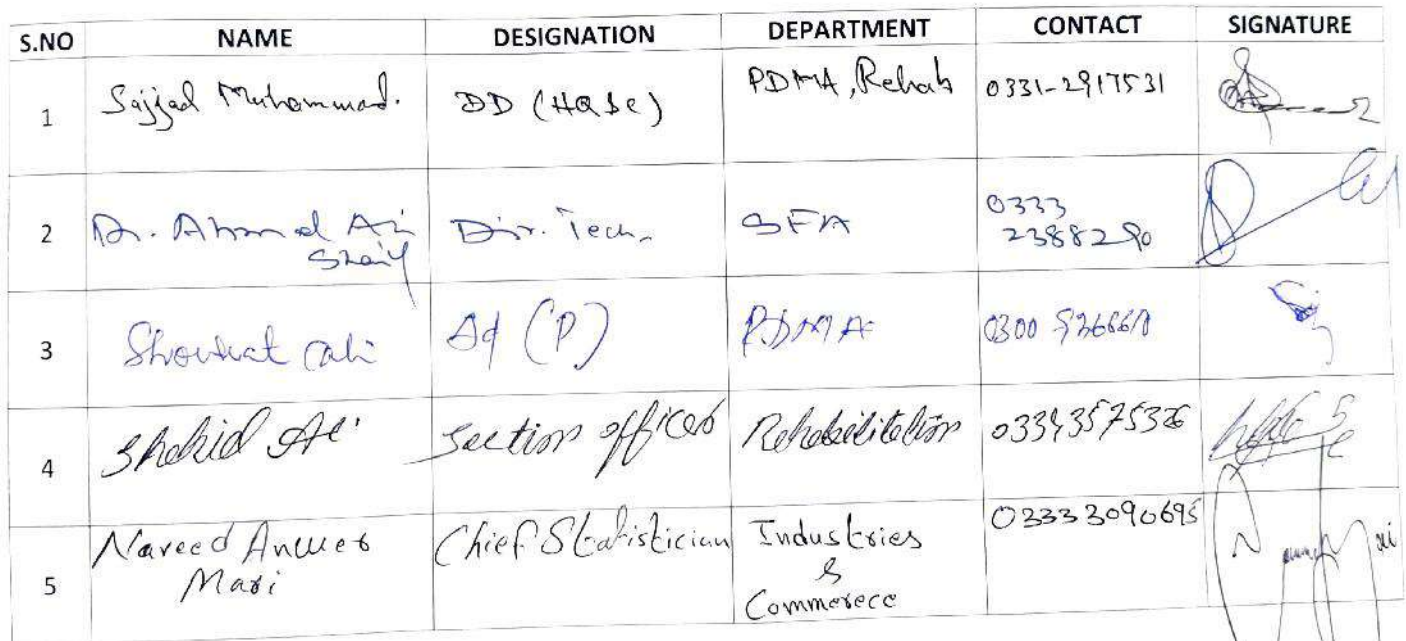 S.NO NAME DESIGNATION DEPARTMENT CONTACT SIGNATURE
1 Sajjad Muhammad. DD (HQ&C) PDMA, Rehab 0331-2917531
2 Dr. Ahmed Ali Dir. Tech. SFA 0333
Shaikh 2388290
3 Showkat Ali Ad (P) PDMA 0300
4 Shahid Ali Section officer Rehabilitation 03343575326
5 Naveed Anwer Chief Statistician Industries 03333090695
Mari &
Commerece